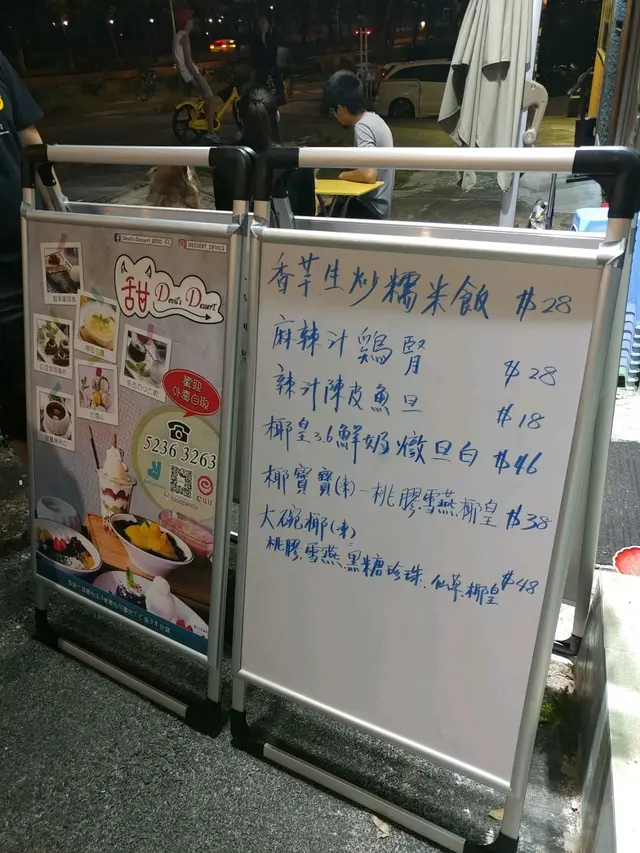 Devil's Dessert
DESSERT_DEVILS
甜 Devil's Dessert
歡迎
外賣自取
5236 3263
foodpanda
香芋生炒糯米飯 $28
麻辣汁鷄腎 $28
辣汁陳皮魚旦 $18
椰皇3.6鮮奶燉旦白 $46
椰寶寶(凍)-桃膠雪燕椰皇 $38
大碗椰(凍)
桃膠.雪燕.黑糖珍珠.仙草.椰皇 $48